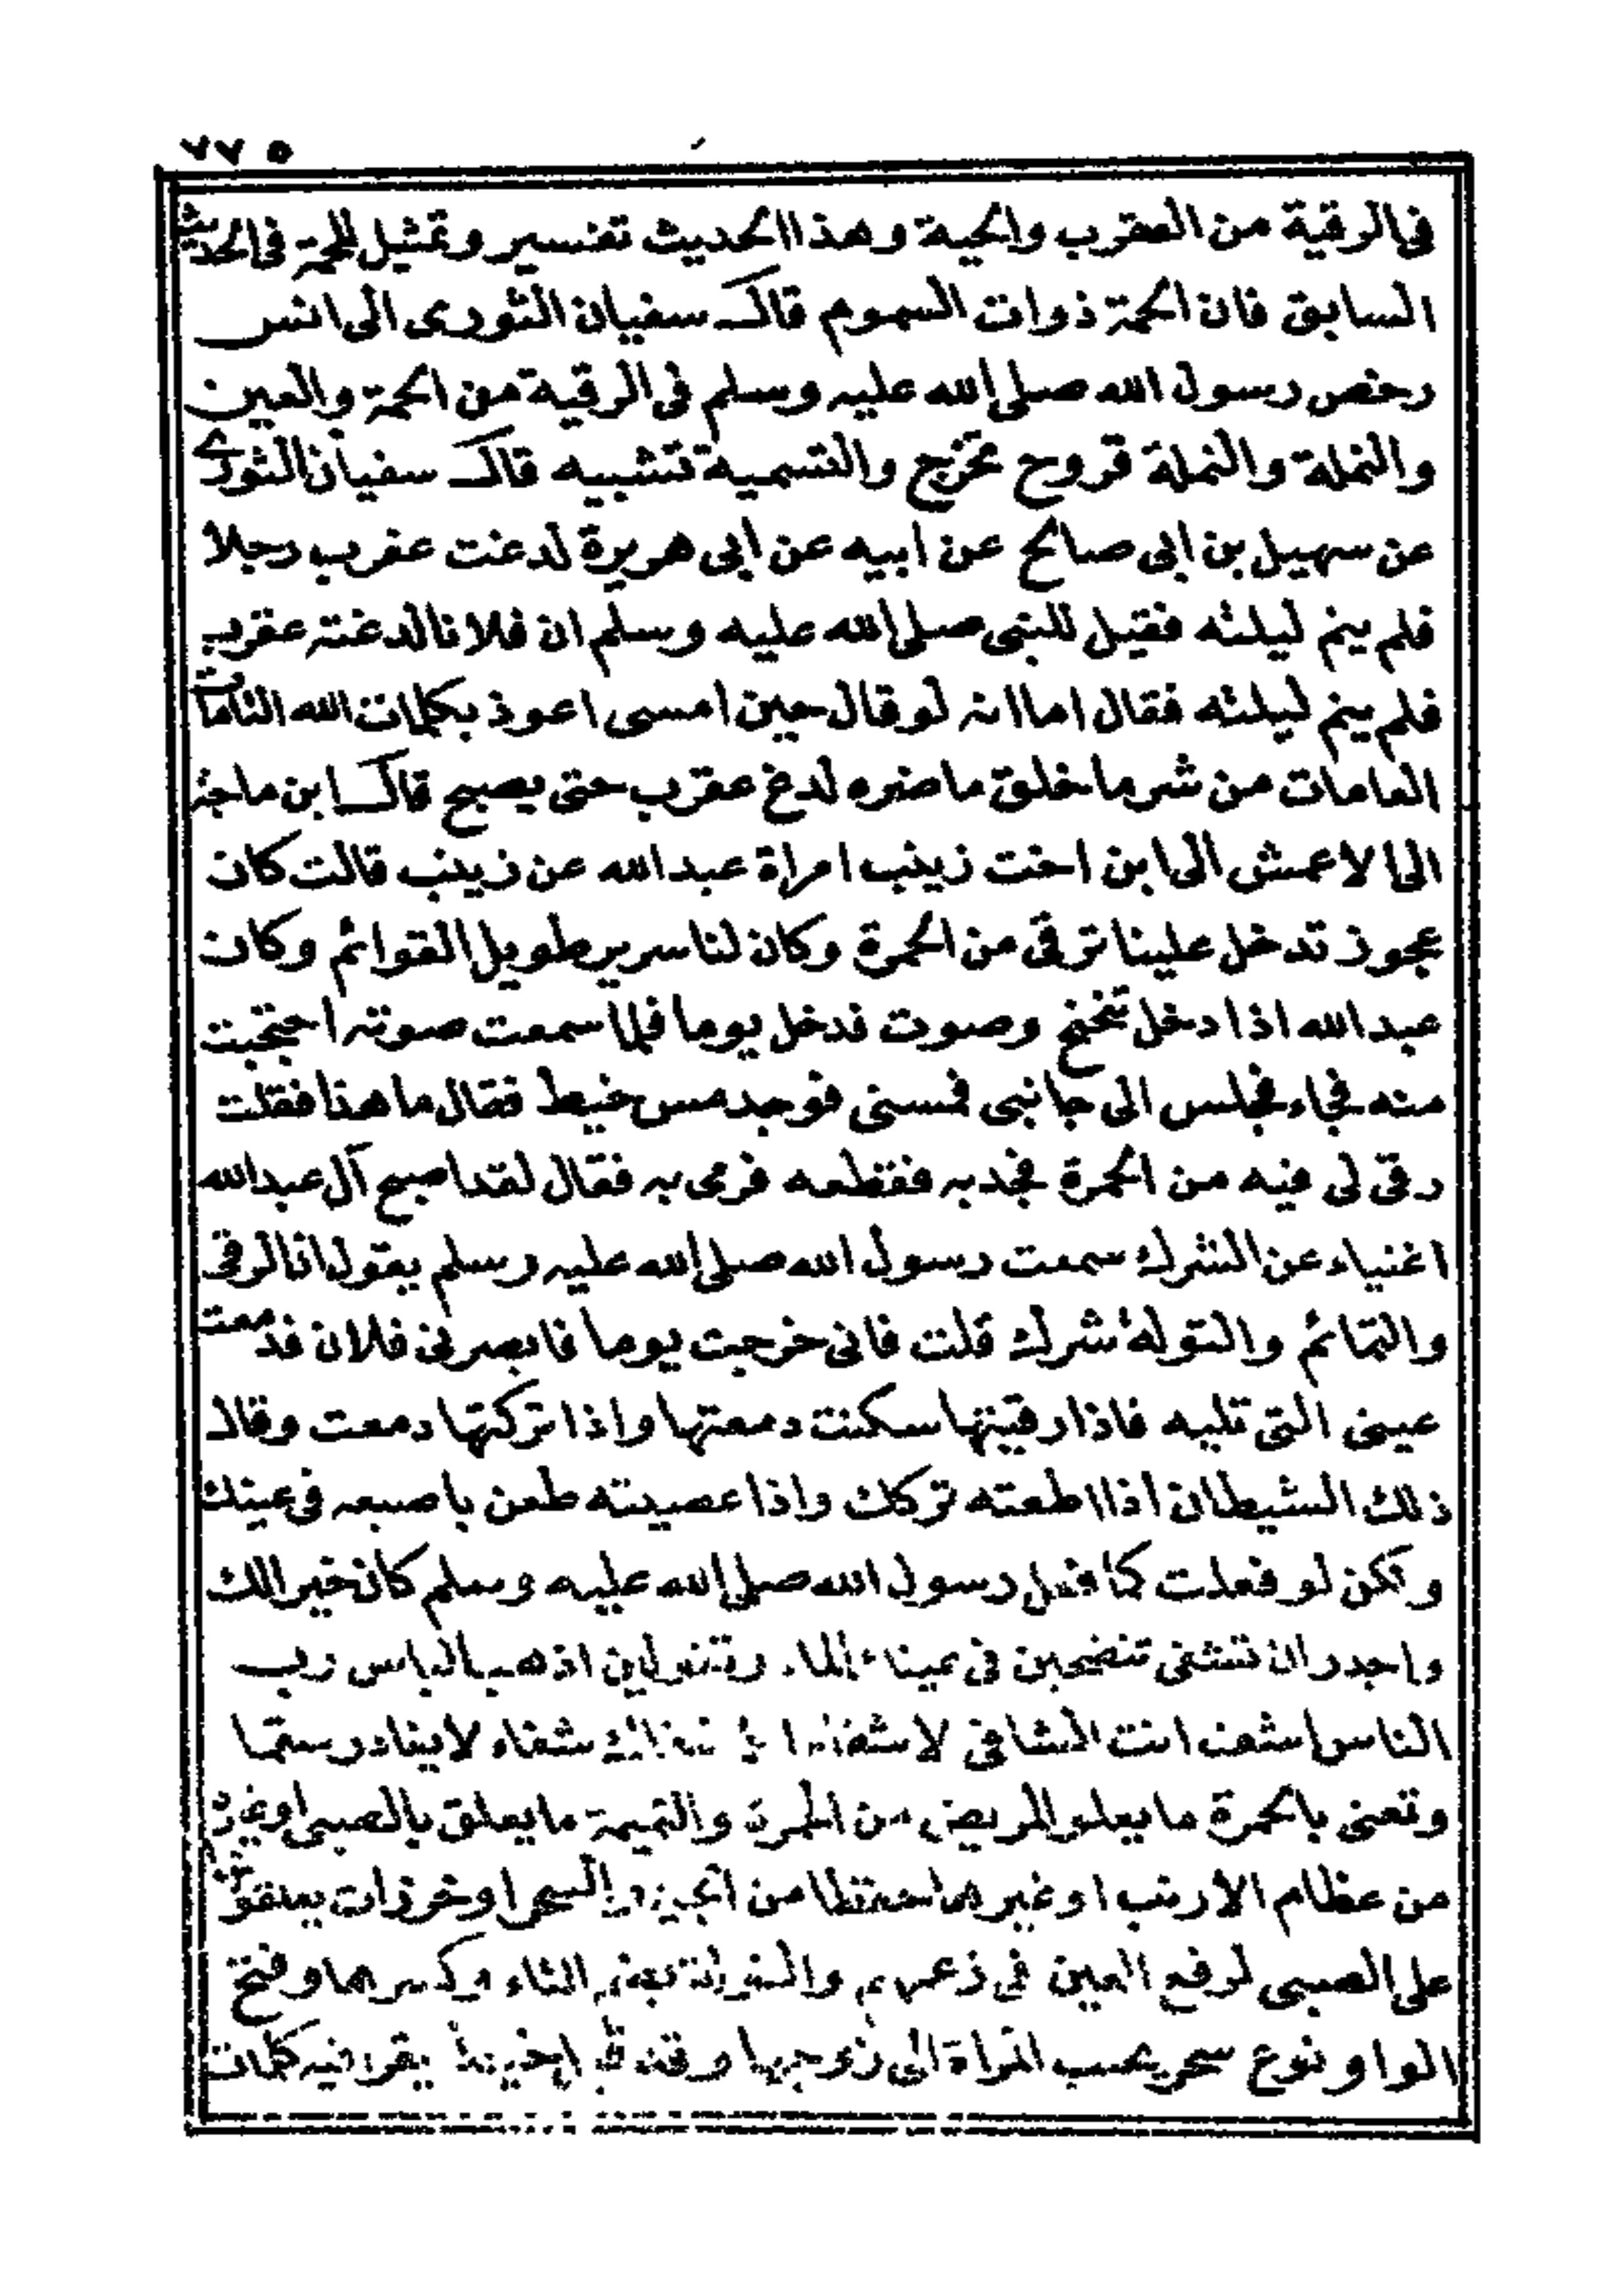 ٧٧٥
في الرقية من العقرب والحية وهذا الحديث تفسير وتمثيل للحمة في الحديث
السابق فان الحمة ذوات السموم قال سفيان الثوري الى انس
رخص رسول الله صلى الله عليه وسلم في الرقية من الحمة والعين
والنملة والنملة قروح تخرج والتسمية تشبيه قال سفيان الثوري
عن سهيل بن ابى صالح عن ابيه عن ابى هريرة لدغت عقرب رجلا
فلم ينم ليلته فقيل للنبى صلى الله عليه وسلم ان فلانا لدغته عقرب
فلم ينم ليلته فقال اما انه لو قال حين امسى اعوذ بكلمات الله التامات
العامات من شر ما خلق ما ضره لدغ عقرب حتى يصبح قال ابن ماجه
الى الاعمش الى ابن اخت زينب امراة عبد الله عن زينب قالت كان
عجوز تدخل علينا ترقى من الحمرة وكان لنا سرير طويل القوائم وكان
عبد الله اذا دخل تنحنح وصوت فدخل يوما فلما سمعت صوته احتجبت
منه فجاء فجلس الى جانبى فمسنى فوجد مس خيط فقال ما هذا فقلت
رقى لى فيه من الحمرة فجذبه فقطعه فرمى به فقال لقد اصبح آل عبد الله
اغنياء عن الشرك سمعت رسول الله صلى الله عليه وسلم يقول ان الرقى
والتمائم والتولة شرك قلت فانى خرجت يوما فابصرنى فلان فدمعت
عينى التى تليه فاذا رقيتها سكنت دمعتها واذا تركتها دمعت وقال
ذلك الشيطان اذا اطعته تركك واذا عصيته طعن باصبعه فى عينك
ولكن لو فعلت كما فعل رسول الله صلى الله عليه وسلم كان خيرا لك
واجدر ان تشفى تنضحين فى عيناء الماء وتقولين اذهب الباس رب
الناس اشف انت الشافى لا شفاء الا شفاؤك شفاء لا يغادر سقما
وتعنى بالحمرة ما يعلو المريض من الحمرة والتميمة ما يعلق بالصبى او غيره
من عظام الارنب او غيرها حفظا من الجن والسحر او خرزات يعلقون
على الصبى لرفع العين فى زعمهم والتولة بضم التاء وكسرها وفتح
الواو نوع سحر يحبب المراة الى زوجها وقد خيط يقرا فيه كلمات